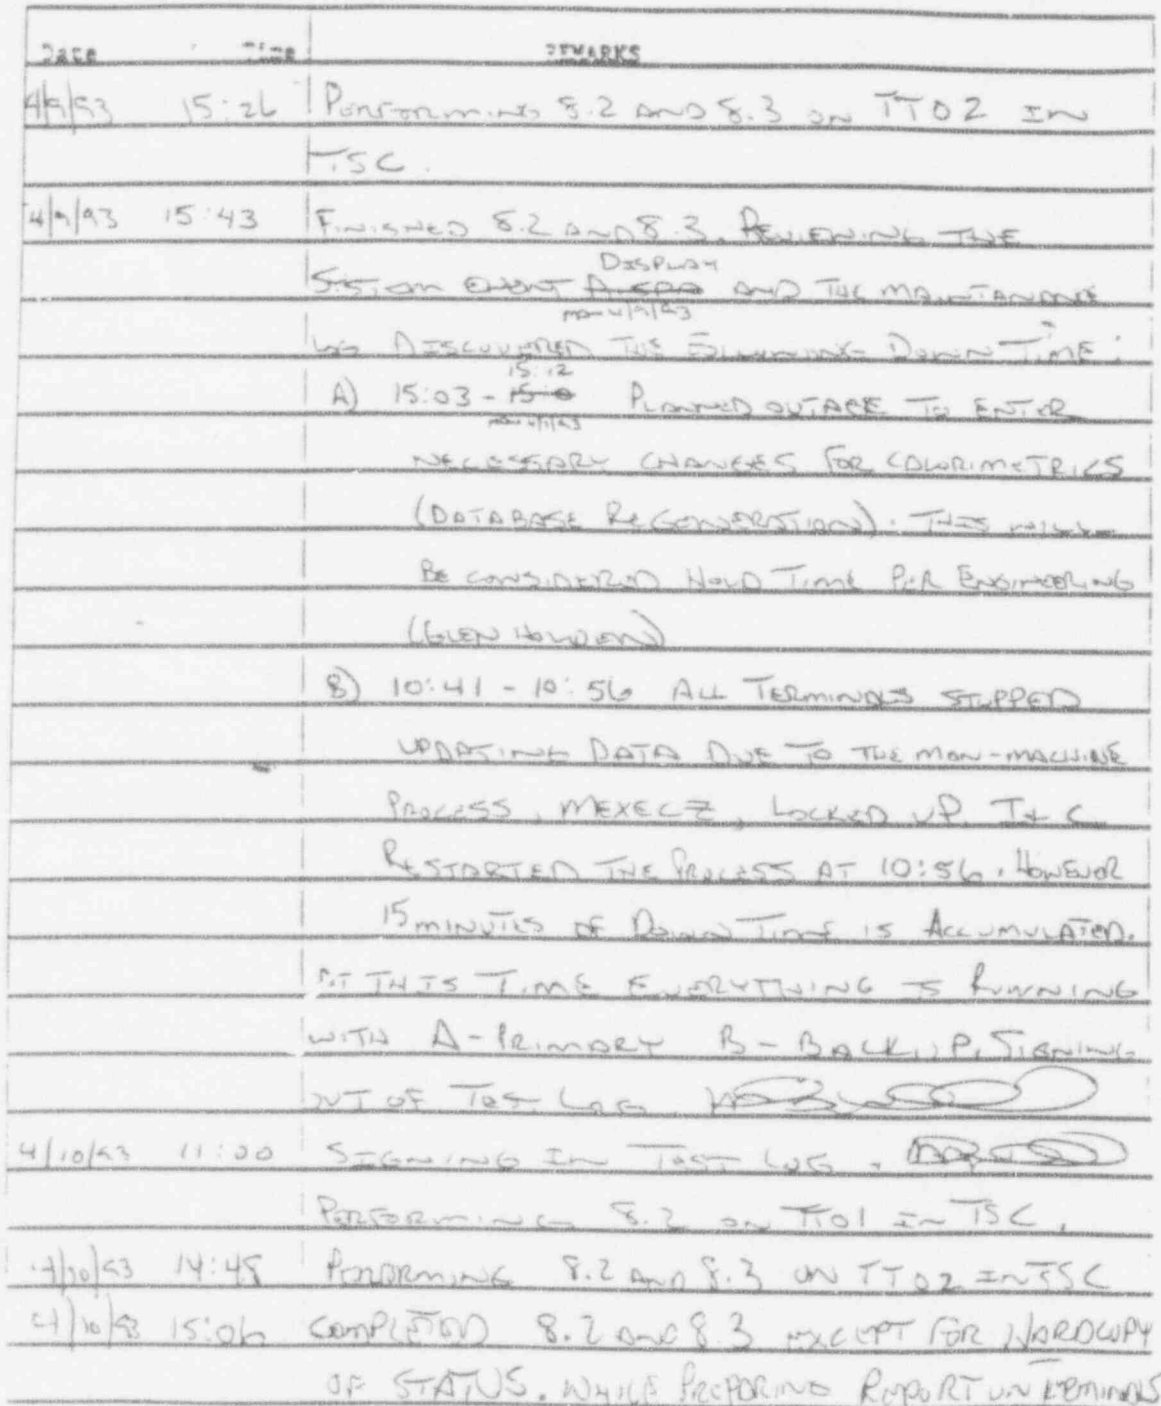 Date Time REMARKS
4/9/93 15:26 PERFORMING 8.2 AND 8.3 ON TT02 IN
TSC.
4/9/93 15:43 FINISHED 8.2 AND 8.3. REVIEWING THE
DISPLAY
SYSTEM EVENT AND THE MAINTANANCE
4/9/93
LOG DISCOVERED THE FOLLOWING DOWN TIME:
15:12
A) 15:03 - PLANNED OUTAGE TO ENTER
4/9/93
NECESSARY CHANGES FOR CALORIMETRICS
(DATABASE REGENERATION). THIS WILL
BE CONSIDERED HOLD TIME PER ENGINEERING
(GLEN HOLDEN)
B) 10:41 - 10:56 ALL TERMINALS STOPPED
UPDATING DATA DUE TO THE MAN-MACHINE
PROCESS, MEXECZ, LOCKED UP. I & C
RESTARTED THE PROCESS AT 10:56. HOWEVER
15 MINUTES OF DOWN TIME IS ACCUMULATED.
AT THIS TIME EVERYTHING IS RUNNING
WITH A-PRIMARY B-BACKUP. SIGNING
OUT OF TEST LOG.
4/10/93 11:00 SIGNING IN TEST LOG.
PERFORMING 8.2 ON TT01 IN TSC.
4/10/93 14:48 PERFORMING 8.2 AND 8.3 ON TT02 IN TSC
4/10/93 15:06 COMPLETED 8.2 AND 8.3 EXCEPT FOR HARDCOPY
OF STATUS. WHILE PREPARING REPORT ON TERMINALS